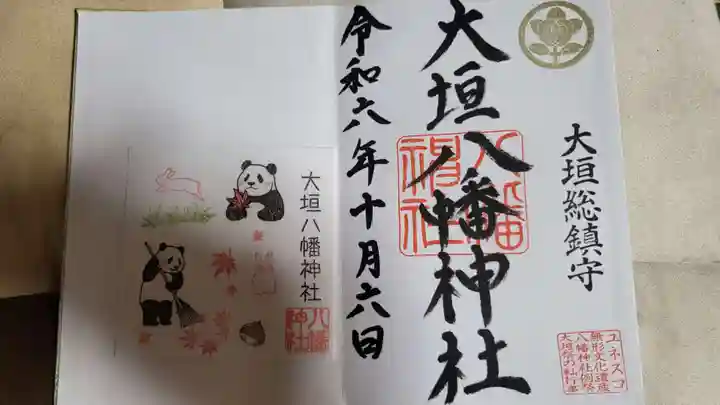 大垣総鎮守
大垣八幡神社
八幡神社
令和六年十月六日
ユネスコ
無形文化遺産
八幡神社例祭
大垣祭の軕行事
大垣八幡神社
八幡神社